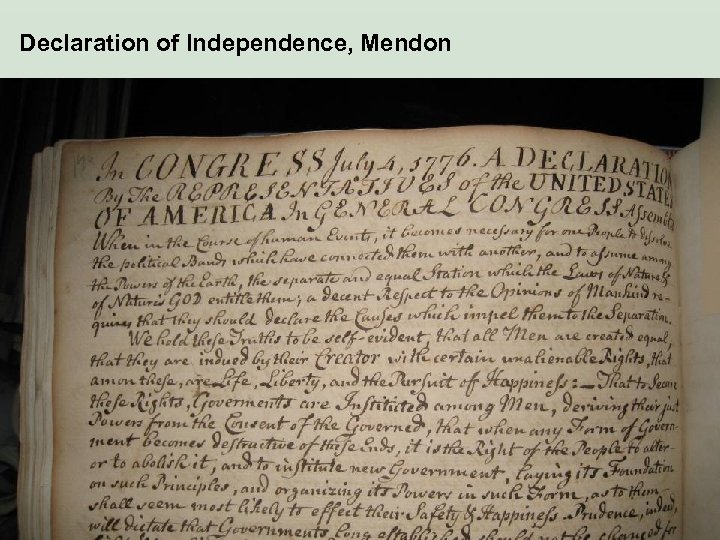 Declaration of Independence, Mendon
In CONGRESS July 4, 1776. A DECLARATION
By The REPRESENTATIVES of the UNITED STATES
OF AMERICA In GENERAL CONGRESS Assembl
When in the Course of human Events, it becomes necessary for one People to dissolve
the political Bands which have connected them with another, and to assume among
the Powers of the Earth, the separate and equal Station which the Laws of Nature &
of Natures GOD entitle them; a decent Respect to the Opinions of Mankind re-
quires that they should declare the Causes which impel them to the Separation.
We hold these Truths to be self-evident, that all Men are created equal,
that they are indued by their Creator with certain unalienable Rights, that
amon these, are Life, Liberty, and the Pursuit of Happiness:—That to Secure
these Rights, Goverments are Instituted among Men, deriving their just
Powers from the Consent of the Governed, that when any Form of Govern-
ment becomes destructive of these Ends, it is the Right of the People to alter
or to abolish it, and to institute new Government, laying its Foundation
on such Principles, and organizing its Powers in such Form, as to them
shall seem most likely to effect their Safety & Happiness. Prudence, indeed,
will dictate that Governments long established should not be changed for